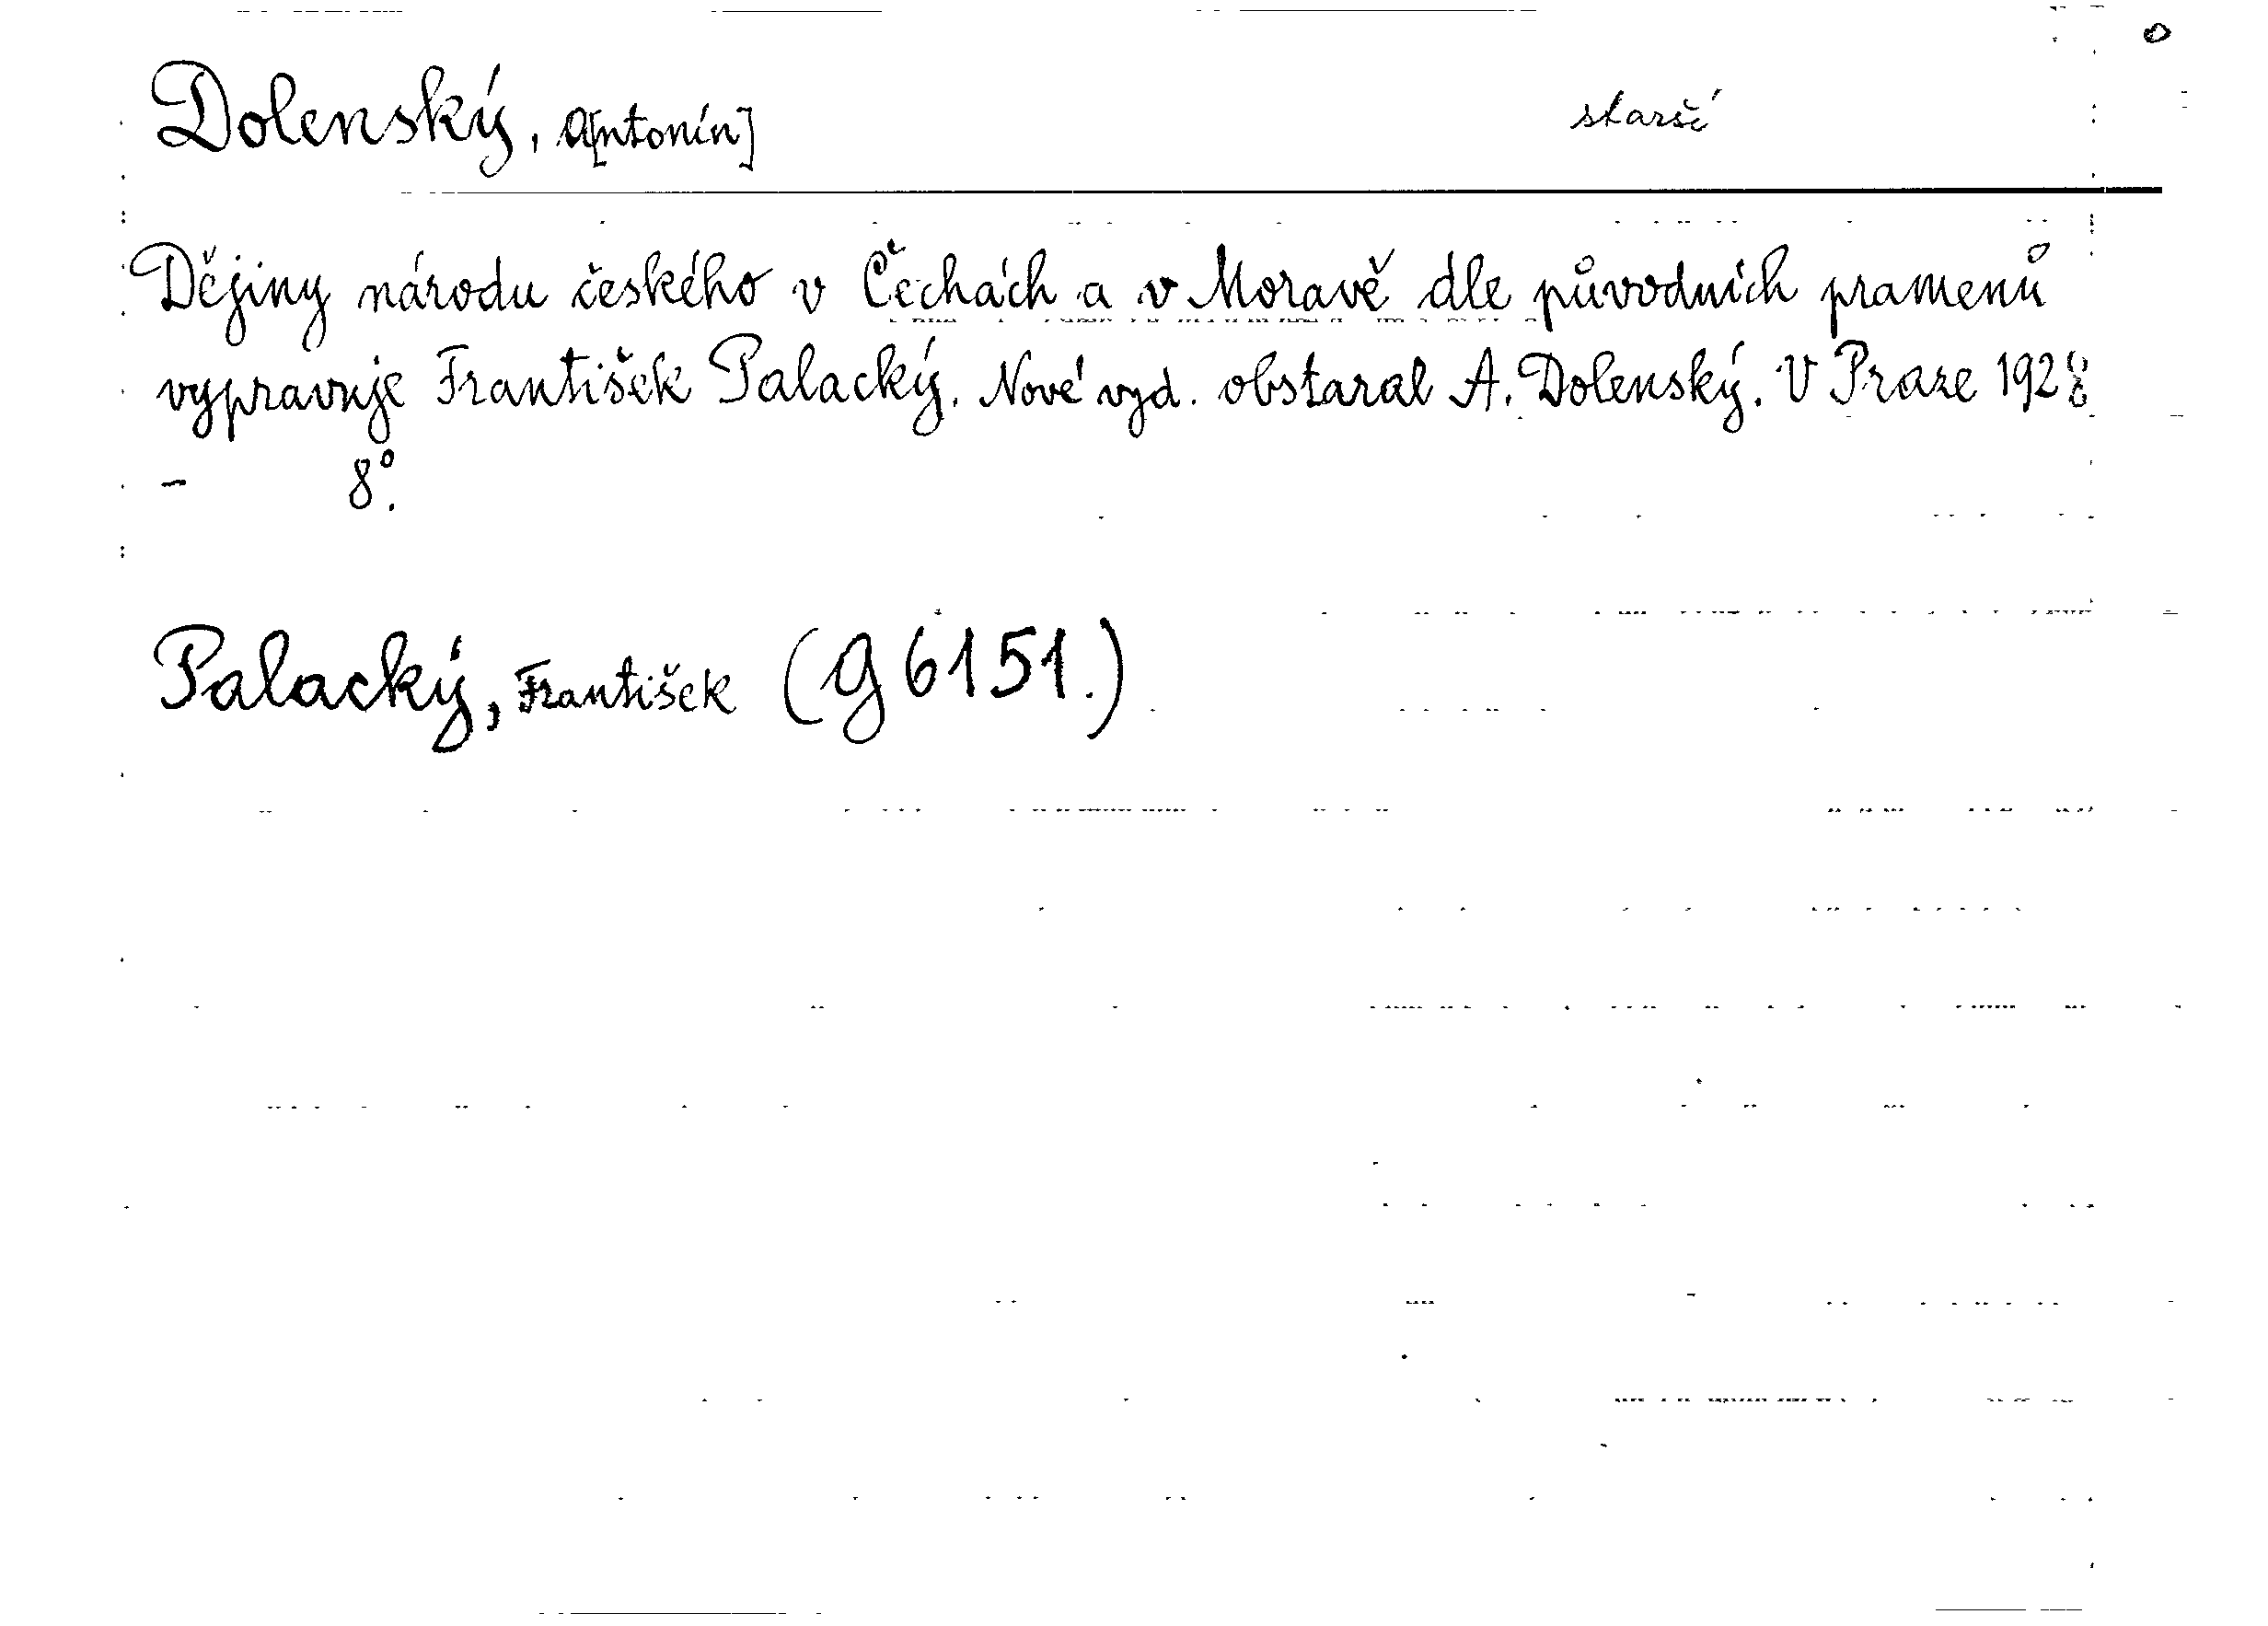 Dolenský, A[ntonín] starší
Dějiny národu českého v Čechách a v Moravě dle původních pramenů
vypravuje František Palacký. Nové vyd. obstaral A. Dolenský. V Praze 1928
- 8°.
Palacký, František (g 6151.)